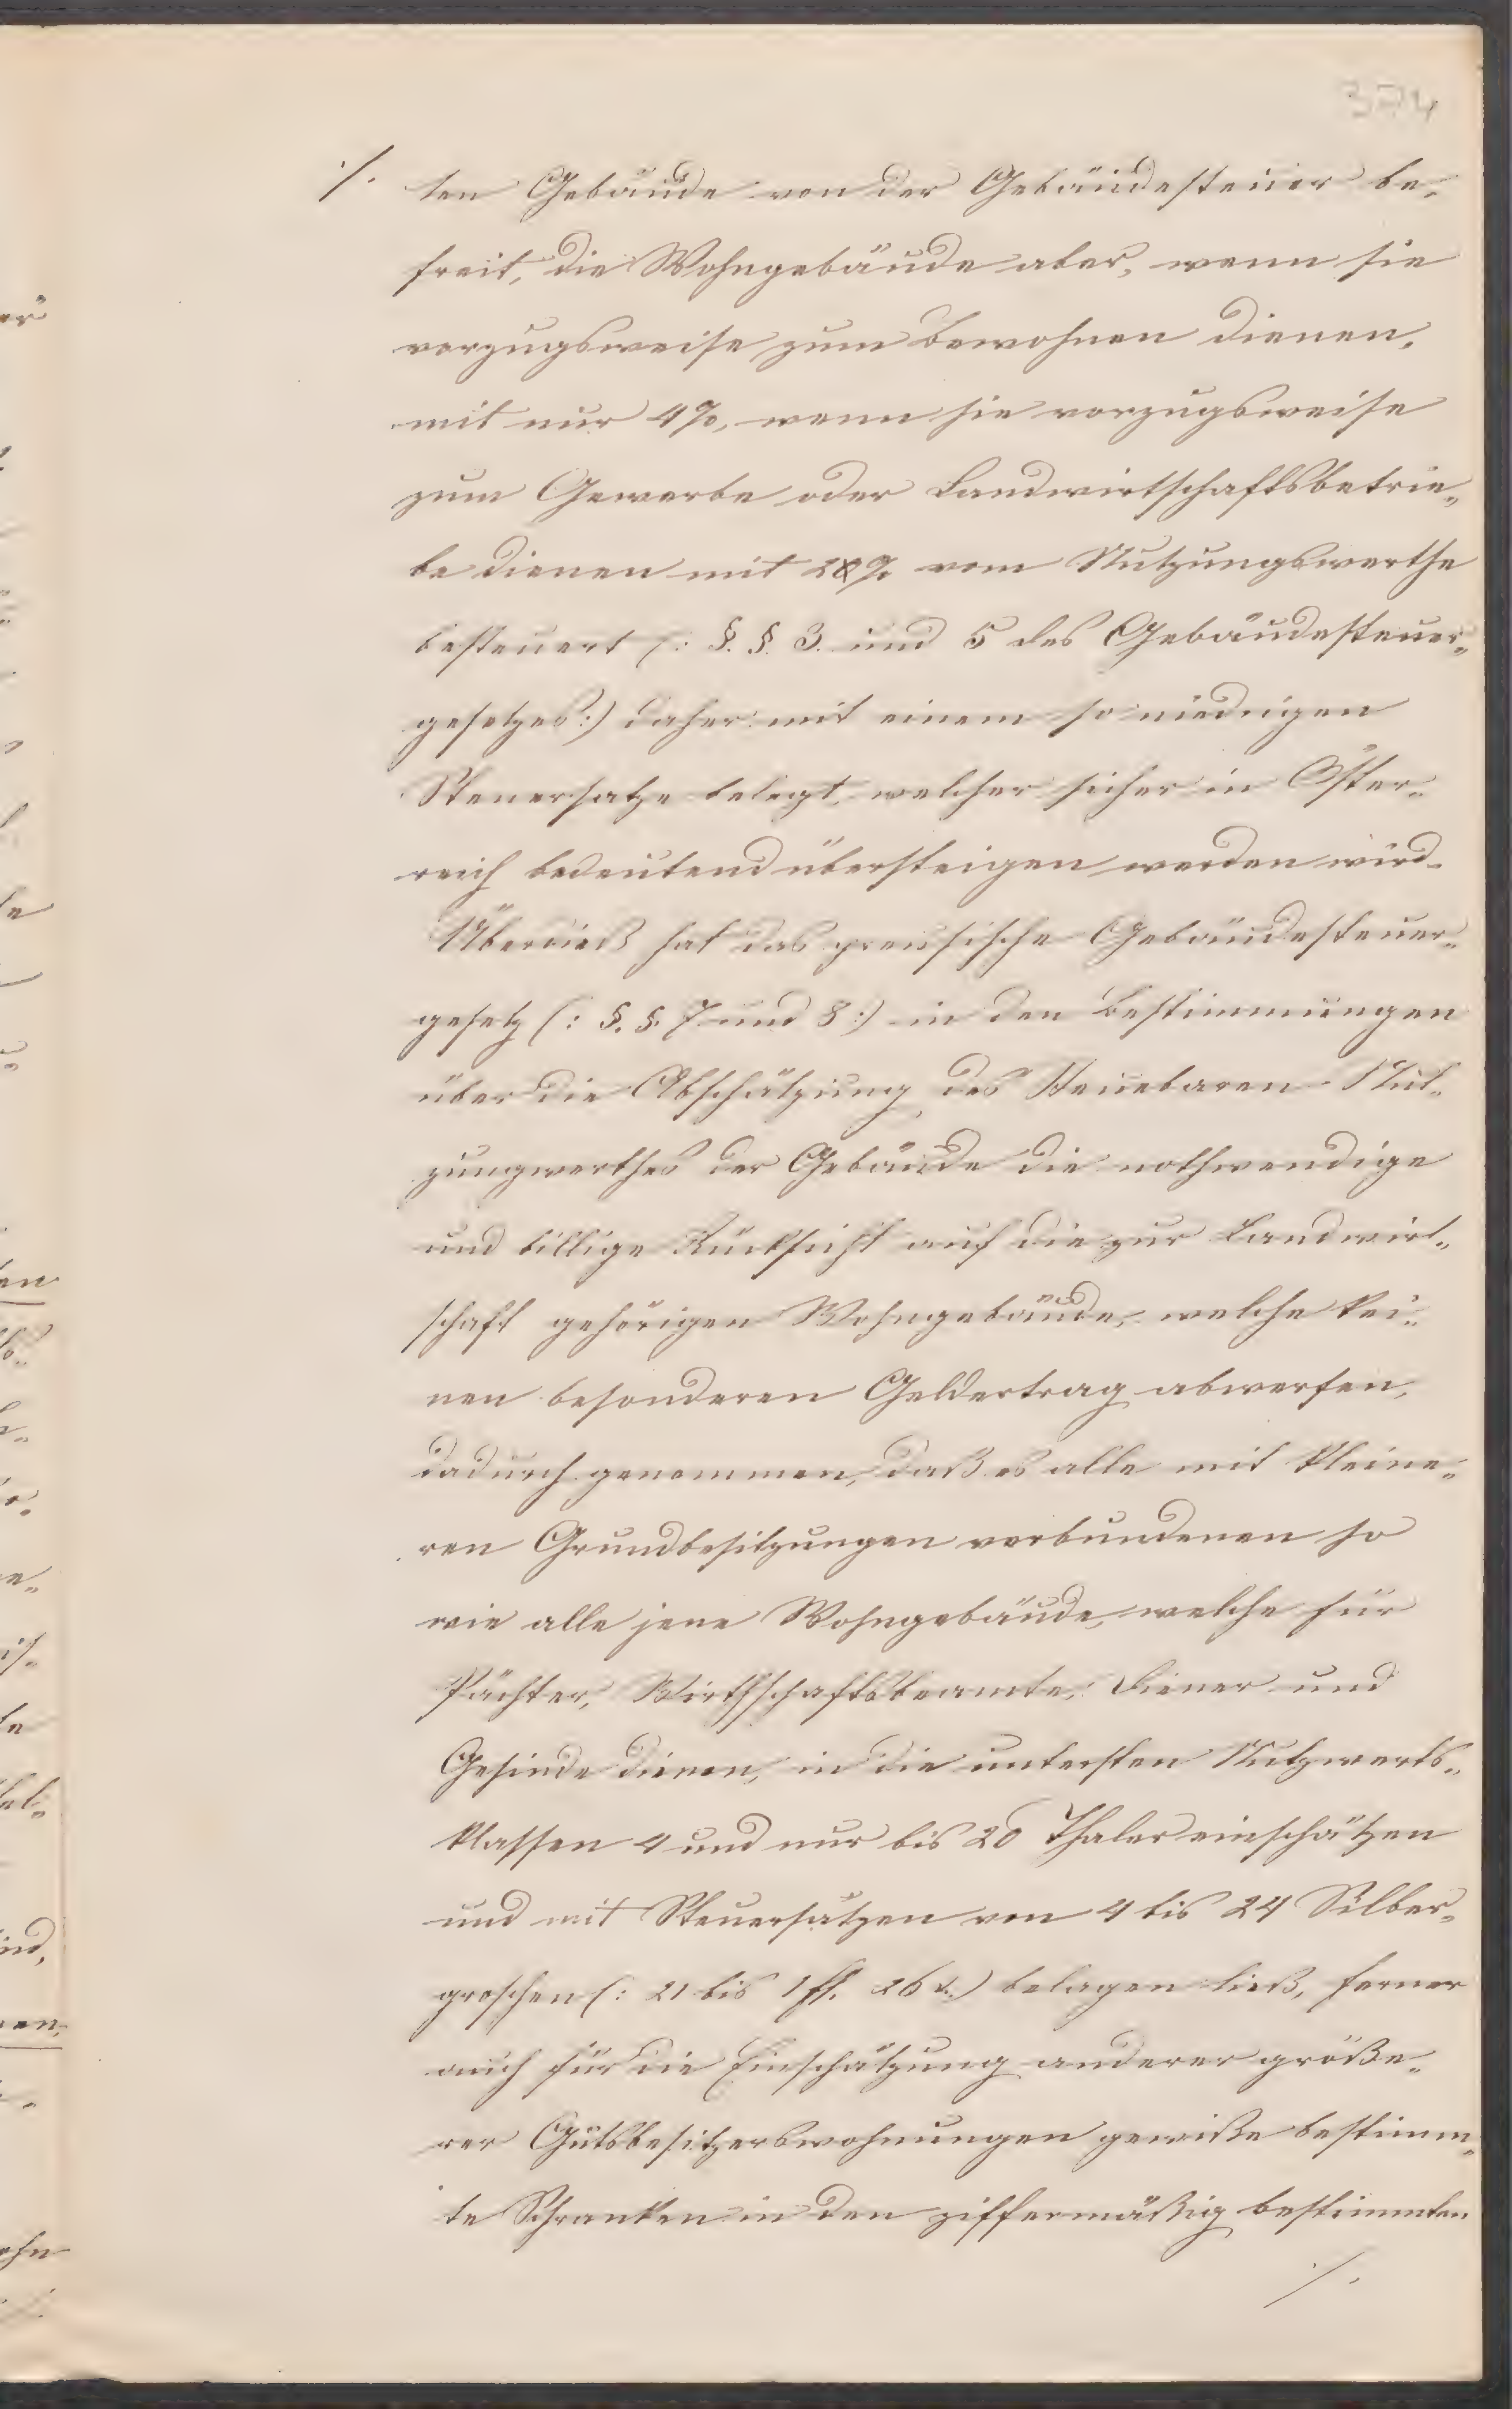 374
./. ten Gebäude von der Gebäudesteuer be„
freit, die Wohngebäude aber, wenn sie
vorzugsweise zum Bewohnen dienen,
mit nur 4%, wenn sie vorzugsweise
zum Gewerbe oder Landwirtschaftsbetrie„
be dienen mit % vom Nutzungswerthe
besteuert (: §. §. 3. und 5 des Gebäudesteuer„
gesetzes :) daher mit einem so niedrigen
Steuersatze belegt, welcher sicher in Öster„
reich bedeutend übersteigen werden wird.
Überdieß hat das preusische Gebäudesteuer„
gesetz (: §. §. 7 und 8 :) in den Bestimmungen
über die Abschätzung des steuebaren Nut„
zungwerthes der Gebäude die nothwendige
und billige Rücksicht auf die zur Landwirt„
schaft gehörigen Wohngebäude, welche kei„
nen besonderen Geldertrag abwerfen,
dadurch genommen, daß es alle mit kleine„
ren Grundbesitzungen verbundenen so
wie alle jene Wohngebäude, welche für
Pächter, Wirthschaftsbeamte, Diener und
Gesinde dienen, in die untersten Nutzwerts„
klassen 4 und nur bis 20 Thaler einschätzen
und mit Steuersätzen von 4 bis 24 Silber„
groschen (: 21 bis 1 fl. 26 x :) belegen ließ, ferner
auch für die Einschätzung anderer größe„
rer Gutsbesitzerswohnungen gewiße bestimm„
te Schranken in den ziffermäßig bestimmten
./.